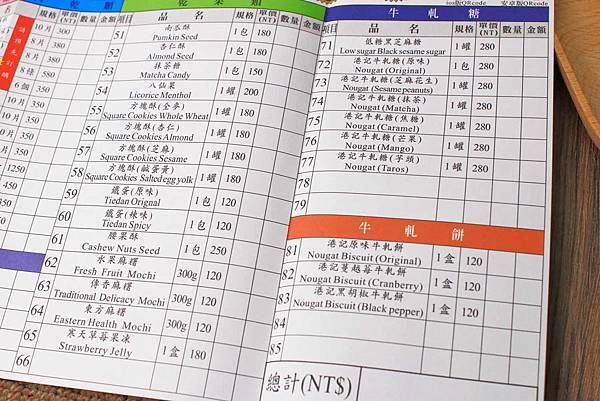 規格 單價(NT) 數量 金額
10片 300
10片 380
8片 350
8條 580
6個 350
10片 350
10片 350
片 350
350
1250
450
350
請預先訂購
乾果類
品名 規格 單價(NT) 數量 金額
51 南瓜酥 Pumkin Seed 1包 180
52 杏仁酥 Almond Seed 1包 180
53 抹茶糖 Matcha Candy 1包 150
54 八仙果 Licorice Menthol 1罐 200
55 方塊酥(全麥) Square Cookies Whole Wheat 1罐 180
56 方塊酥(杏仁) Square Cookies Almond 1罐 180
57 方塊酥(芝麻) Square Cookies Sesame 1罐 180
58 方塊酥(鹹蛋黃) Square Cookies Salted egg yolk 1罐 180
59 鐵蛋(原味) Tiedan Orignal 1包 120
60 鐵蛋(辣味) Tiedan Spicy 1包 120
61 腰果酥 Cashew Nuts Seed 1包 250
62 水果麻糬 Fresh Fruit Mochi 300g 120
63 傳香麻糬 Traditional Delicacy Mochi 300g 120
64 東方麻糬 Eastern Health Mochi 300g 120
65 寒天草莓果凍 Strawberry Jelly 1盒 180
66
ios版QRcode 安卓版QRcode
牛軋糖
項目 品名 規格 單價(NT) 數量 金額
71 低糖黑芝麻糖 Low sugar Black sesame sugar 1罐 280
72 港記牛軋糖(原味) Nougat (Original) 1罐 280
73 港記牛軋糖(芝麻花生) Nougat (Sesame peanuts) 1罐 280
74 港記牛軋糖(抹茶) Nougat (Matcha) 1罐 280
75 港記牛軋糖(焦糖) Nougat (Caramel) 1罐 280
76 港記牛軋糖(芒果) Nougat (Mango) 1罐 280
77 港記牛軋糖(芋頭) Nougat (Taros) 1罐 280
78
79
牛軋餅
81 港記原味牛軋餅 Nougat Biscuit (Original) 1盒 120
82 港記蔓越莓牛軋餅 Nougat Biscuit (Cranberry) 1盒 120
83 港記黑胡椒牛軋餅 Nougat Biscuit (Black pepper) 1盒 120
84
85
總計(NT$)